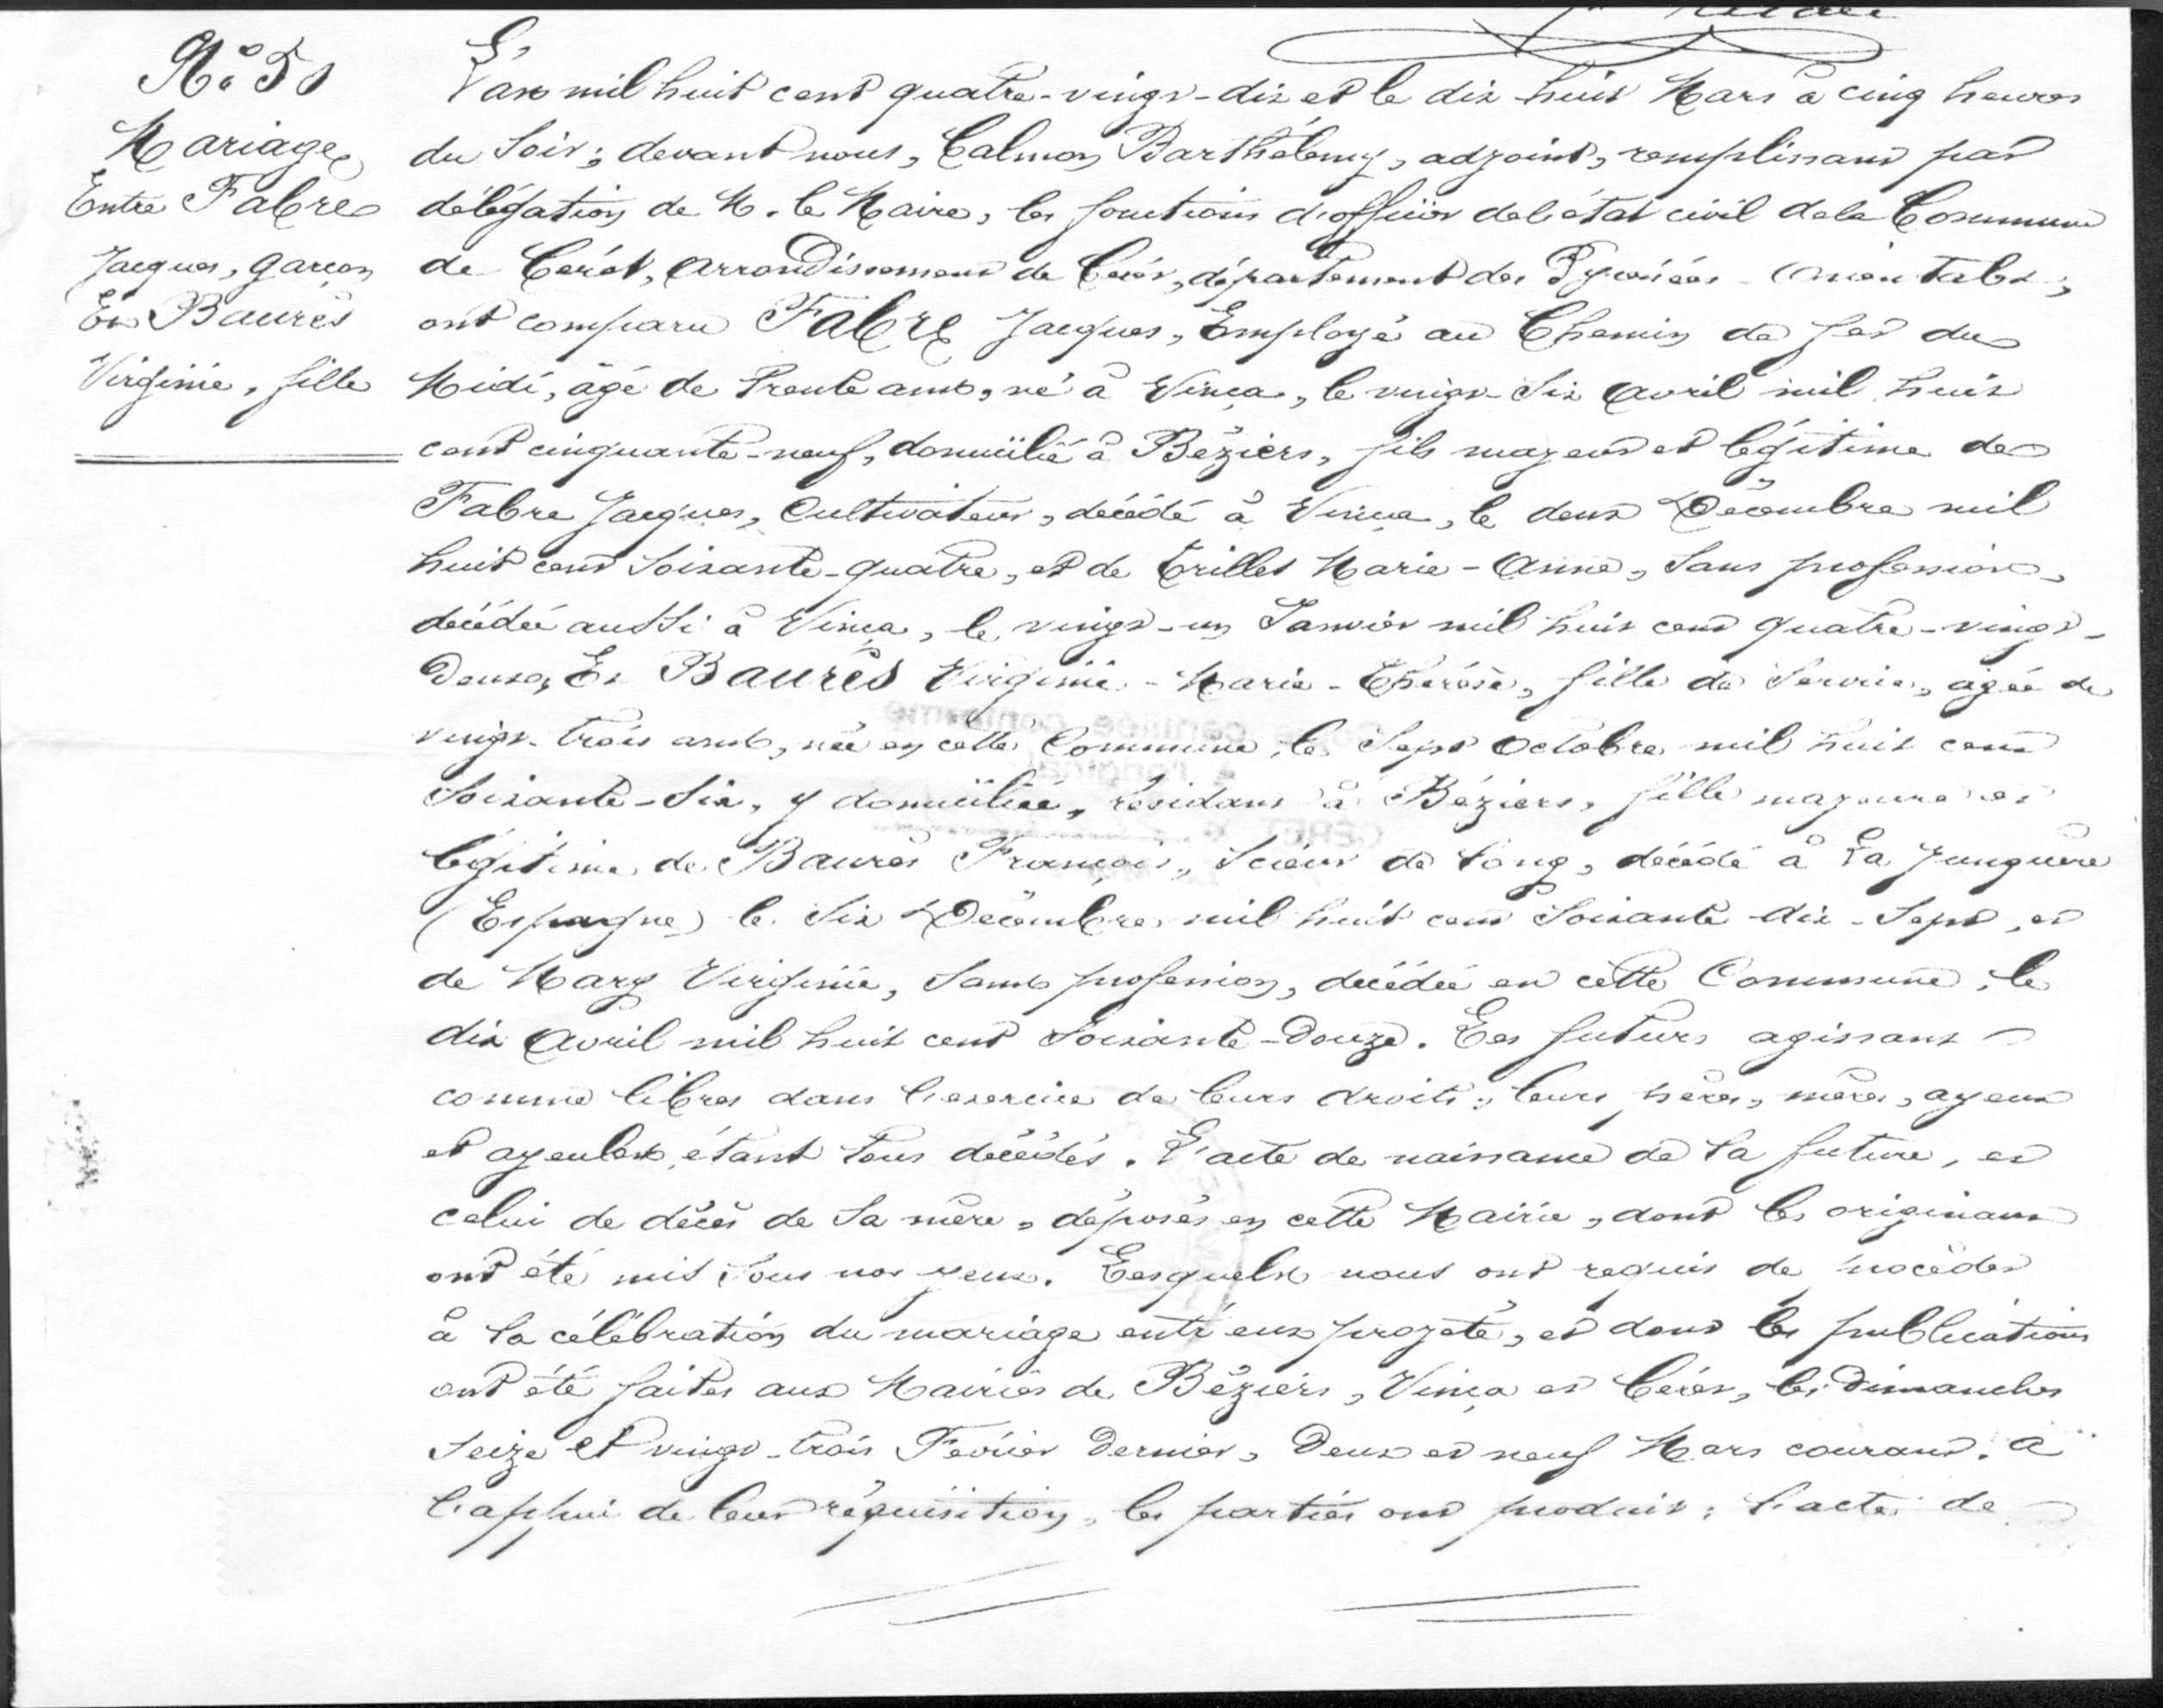 N° 51
Mariage
Entre Fabre
Jacques, garçon
Et Baurès
Virginie, fille
L'an mil huit cent quatre-vingt-dix et le dix huit Mars à cinq heures
du Soir; devant nous, Calmon Barthélemy, adjoint, remplissant par
délégation de M. le Maire, les fonctions d'officier de l'état civil de la Commune
de Céret, arrondissement de Céret, département des Pyrénées-Orientales,
ont comparu Fabre Jacques, Employé au Chemin de fer du
Midi, âgé de trente ans, né à Vinça, le vingt-six avril mil huit
cent cinquante-neuf, domicilié à Béziers, fils majeur et légitime de
Fabre Jacques, Cultivateur, décédé à Vinça, le deux Décembre mil
huit cent soixante-quatre, et de Trilles Marie-Anne, sans profession,
décédée aussi à Vinça, le vingt-un Janvier mil huit cent quatre-vingt-
deux, Et Baurès Virginie-Marie-Thérèse, fille de Service, âgée de
vingt-trois ans, née en cette Commune, le sept Octobre mil huit cent
soixante-six, y domiciliée, résidant à Béziers, fille majeure et
légitime de Baurès François, Scieur de long, décédé à La Junquère
(Espagne) le six Décembre mil huit cent soixante-dix-sept, et
de Mary Virginie, sans profession, décédée en cette Commune, le
dix Avril mil huit cent soixante-douze. Les futurs agissant
comme libres dans l'exercice de leurs droits; leurs pères, mères, ayeux
et ayeules, étant tous décédés. L'acte de naissance de la future, et
celui de décès de sa mère, déposés en cette Mairie, dont les originaux
ont été mis sous nos yeux. Lesquels nous ont requis de procéder
à la célébration du mariage entr'eux projeté, et dont les publications
ont été faites aux Mairies de Béziers, Vinça et Céret, les dimanches
seize et vingt-trois Février dernier, deux et neuf Mars courant. A
l'appui de leur réquisition, les parties ont produit: l'acte de